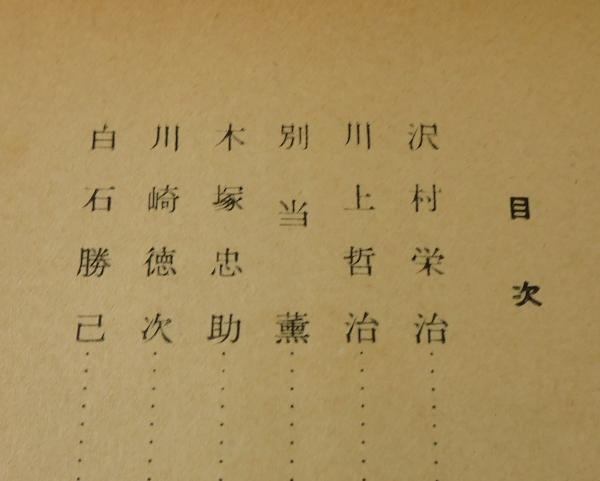 目次
沢村栄治
川上哲治
別当薫
木塚忠助
川崎徳次
白石勝己